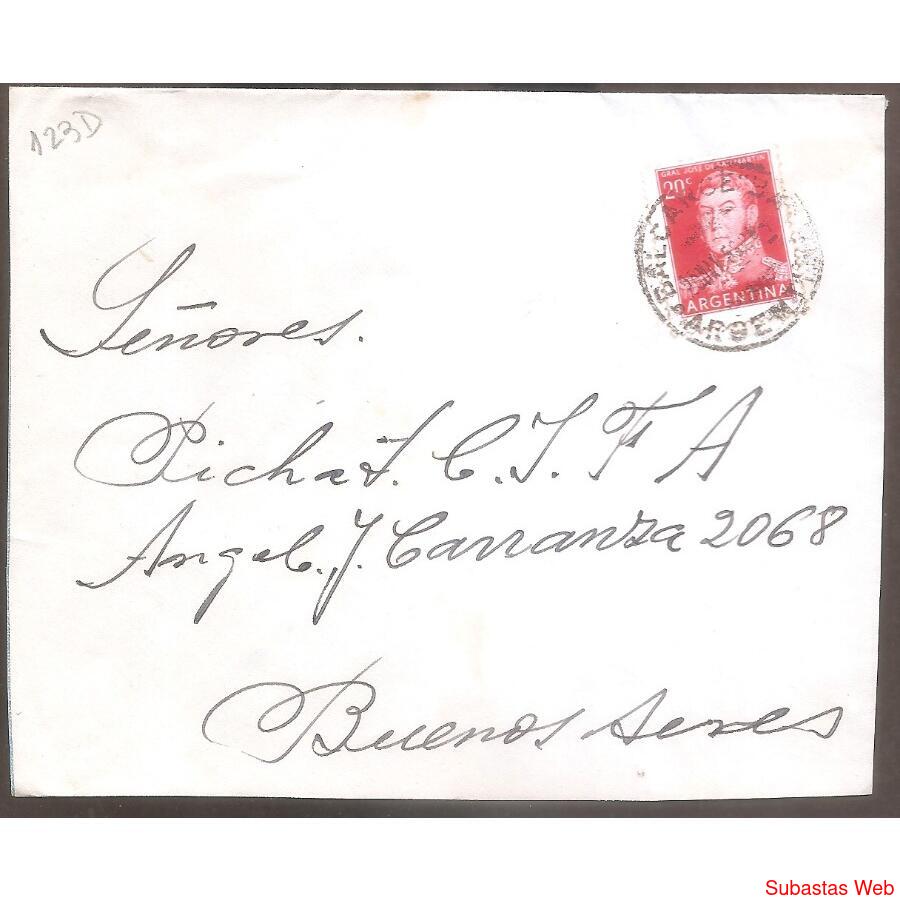 123D
GRAL JOSE DE SAN MARTIN
20c
BALCARCE
ARGENTINA
Señores.
Pichat. C. I. F A
Angel. J. Carranza 2068
Buenos Aeres
Subastas Web